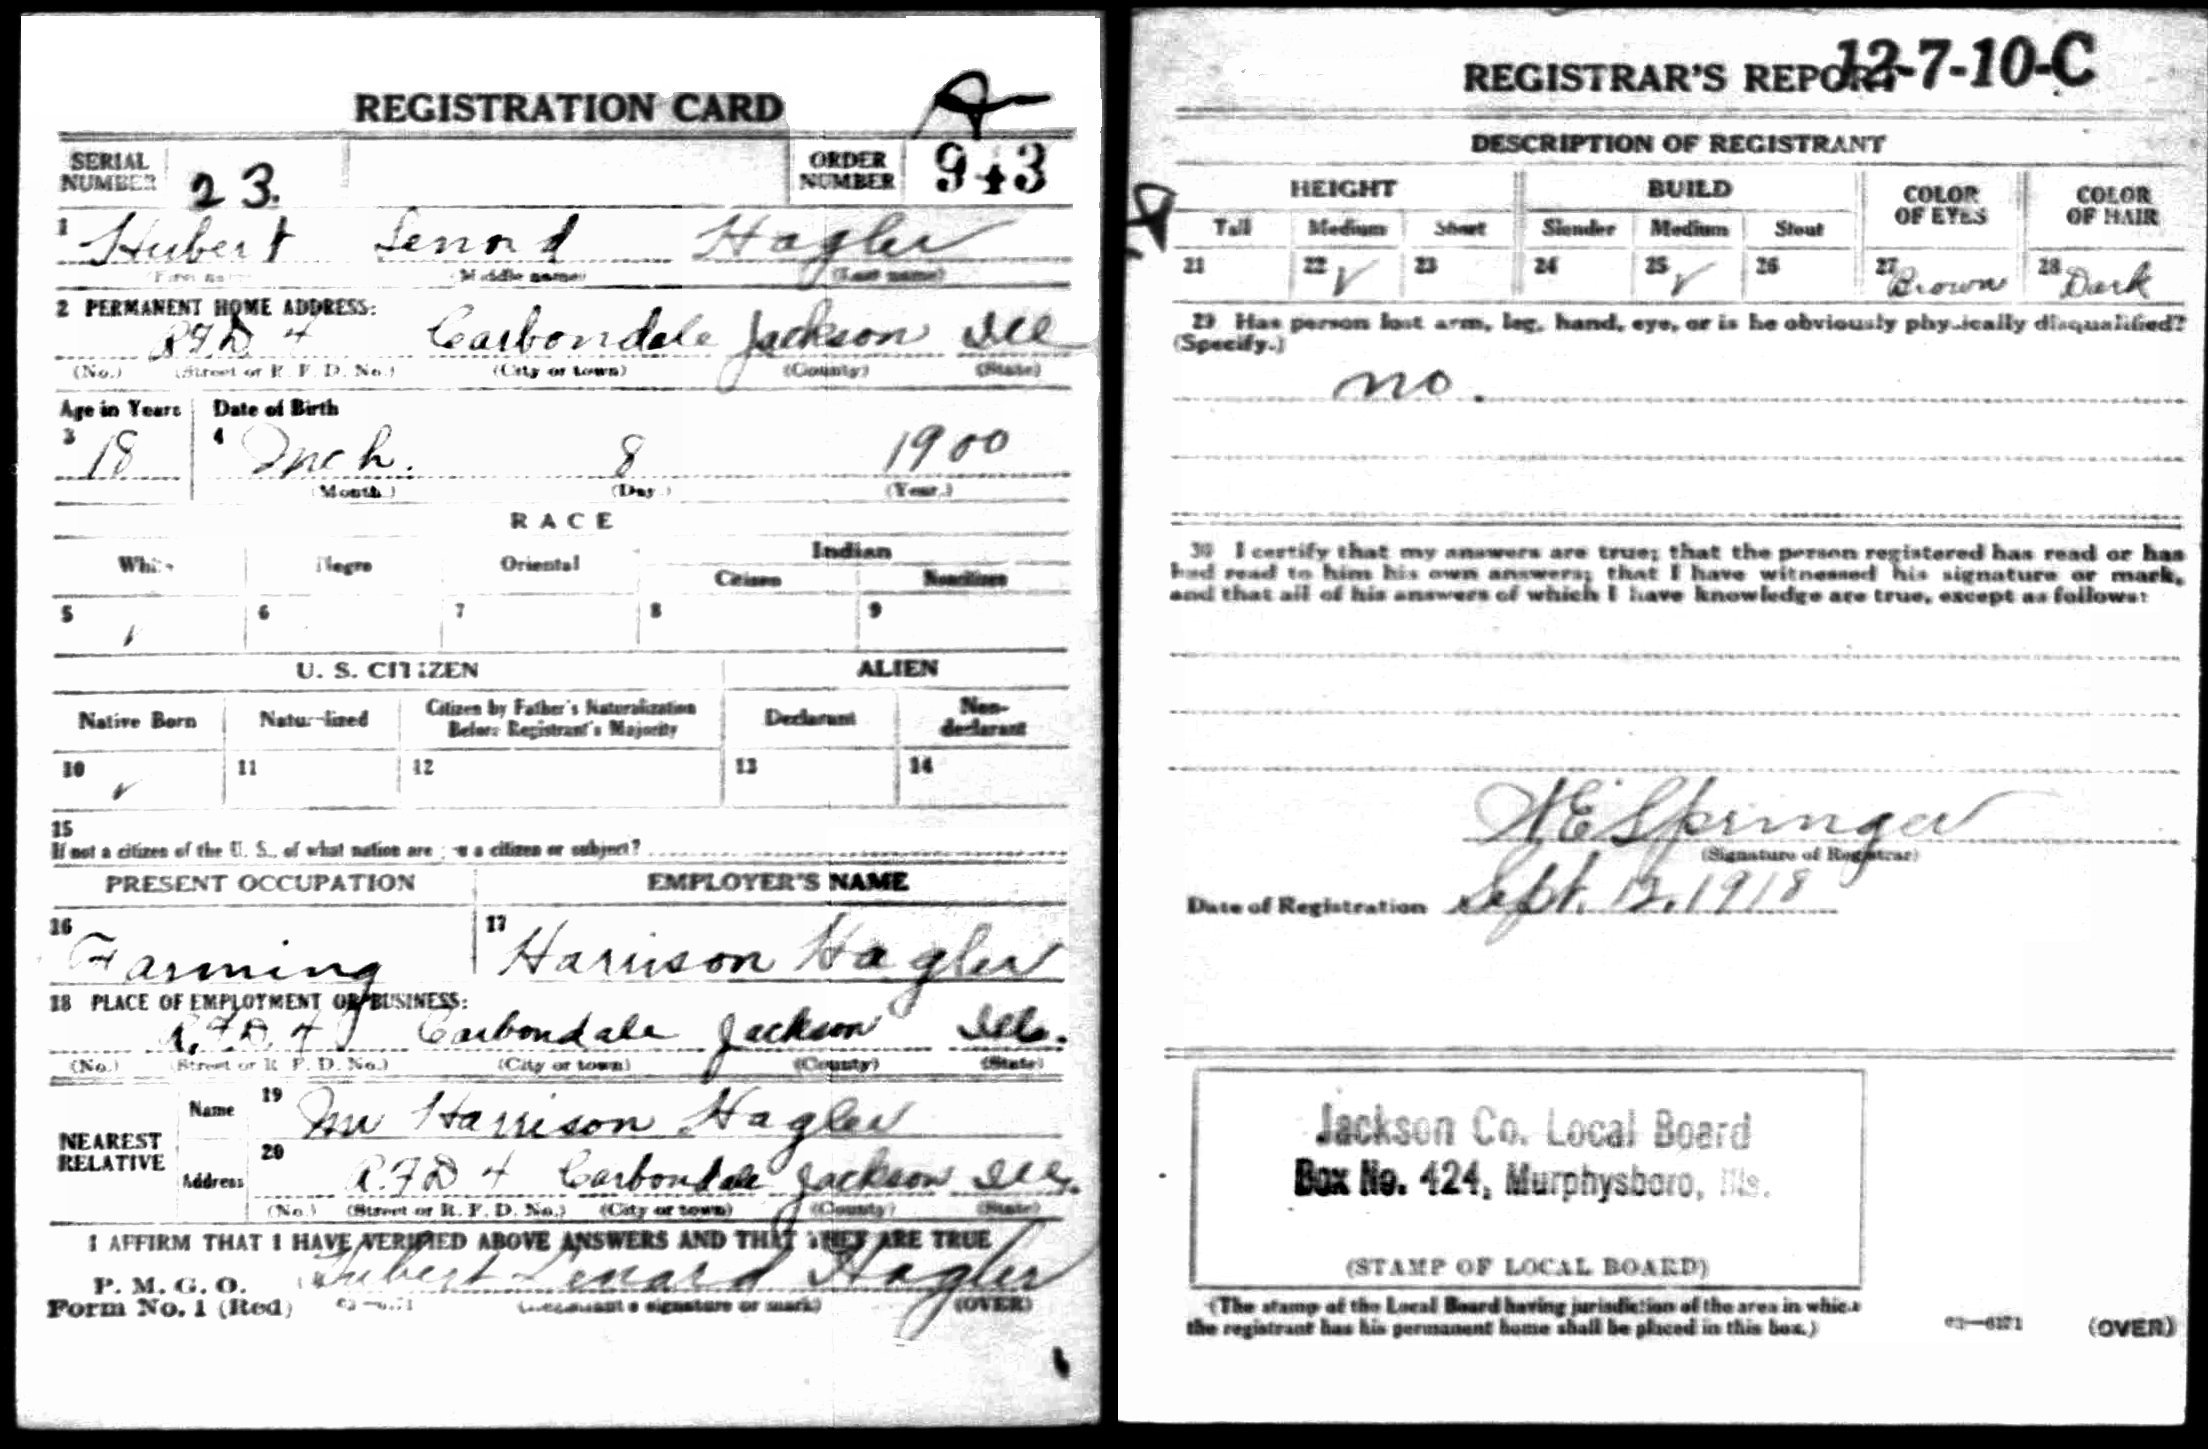 REGISTRATION CARD
SERIAL NUMBER 23. ORDER NUMBER 943
1 Hubert Lenord Hagler
(First name) (Middle name) (Last name)
2 PERMANENT HOME ADDRESS:
R.F.D 4 Carbondale Jackson Ill
(No.) (Street or R. F. D. No.) (City or town) (County) (State)
Age in Years Date of Birth
3 18 4 Mch. 8 1900
(Month.) (Day.) (Year.)
RACE
White Negro Oriental Indian
Citizen Noncitizen
5 ✓ 6 7 8 9
U. S. CITIZEN ALIEN
Native Born Naturalized Citizen by Father's Naturalization Before Registrant's Majority Declarant Non-declarant
10 ✓ 11 12 13 14
15
If not a citizen of the U. S., of what nation are you a citizen or subject?
PRESENT OCCUPATION EMPLOYER'S NAME
16 Farming 17 Harrison Hagler
18 PLACE OF EMPLOYMENT OR BUSINESS:
R.F.D. 4 Carbondale Jackson Ill.
(No.) (Street or R. F. D. No.) (City or town) (County) (State)
NEAREST RELATIVE
Name 19 Mr Harrison Hagler
Address 20 R.F.D 4 Carbondale Jackson Ill.
(No.) (Street or R. F. D. No.) (City or town) (County) (State)
I AFFIRM THAT I HAVE VERIFIED ABOVE ANSWERS AND THAT THEY ARE TRUE
P. M. G. O.
Form No. 1 (Red) Hubert Lenard Hagler
(Registrant's signature or mark) (OVER)
REGISTRAR'S REPORT 12-7-10-C
DESCRIPTION OF REGISTRANT
HEIGHT BUILD COLOR OF EYES COLOR OF HAIR
Tall Medium Short Slender Medium Stout
21 22 ✓ 23 24 25 ✓ 26 27 Brown 28 Dark
29 Has person lost arm, leg, hand, eye, or is he obviously physically disqualified?
(Specify.)
no.
30 I certify that my answers are true; that the person registered has read or has
had read to him his own answers; that I have witnessed his signature or mark,
and that all of his answers of which I have knowledge are true, except as follows:
Springer
(Signature of Registrar)
Date of Registration Sept. 12, 1918
Jackson Co. Local Board
Box No. 424, Murphysboro, Ills.
(STAMP OF LOCAL BOARD)
(The stamp of the Local Board having jurisdiction of the area in which
the registrant has his permanent home shall be placed in this box.)
03—6171 (OVER)